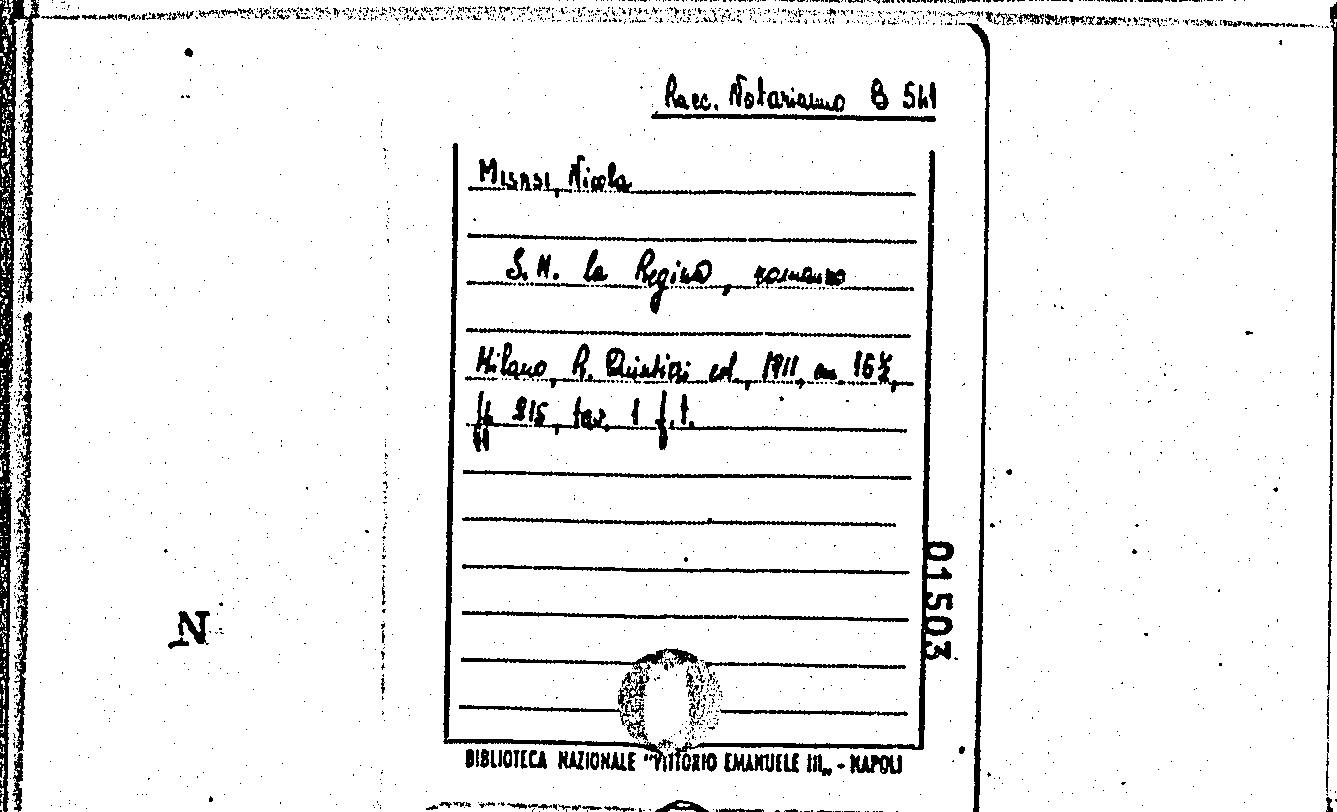 Racc. Notarianno B 541
MISASI, Nicola
S. M. la Regina, romanzo
Milano, R. Quintieri ed., 1911, in 16½,
pp 215, tav. 1 f.t.
01503
N
BIBLIOTECA NAZIONALE "VITTORIO EMANUELE III„ - NAPOLI